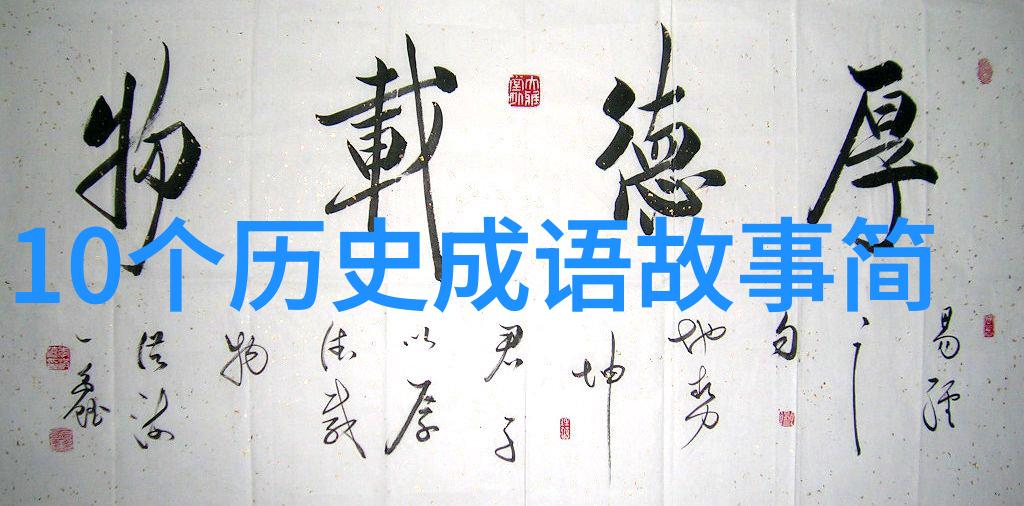 厚德載物
10个历史成语故事简
易经
之
句
地势
坤
君子
以厚
德载
物